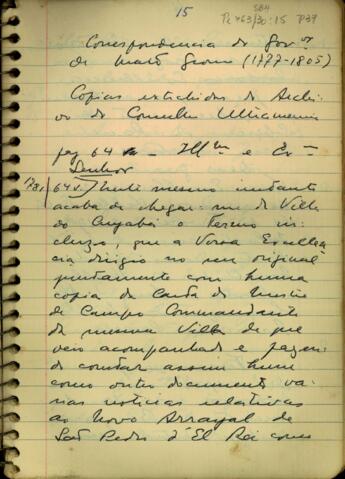 15
Correspondencia do Govor
de Mato Grosso (1777-1805)
Copias extrahidas do Archi-
vo do Conselho Ultramarino
pag 64 Illm e Exm
Senhor
64v. Neste mesmo instante
acaba de chegar me da Villa
do Cuyabá o Termo in-
cluzo, que a Vossa Excellen-
cia dirigio no seu original
juntamente com huma
copia da Carta do Mestre
de Campo Commandante
da mesma Villa de que
veio acompanhado e fazen-
do constar assim hum
como outro documento va-
rias noticias relativas
ao Novo Arrayal de
São Pedro d'El Rei com